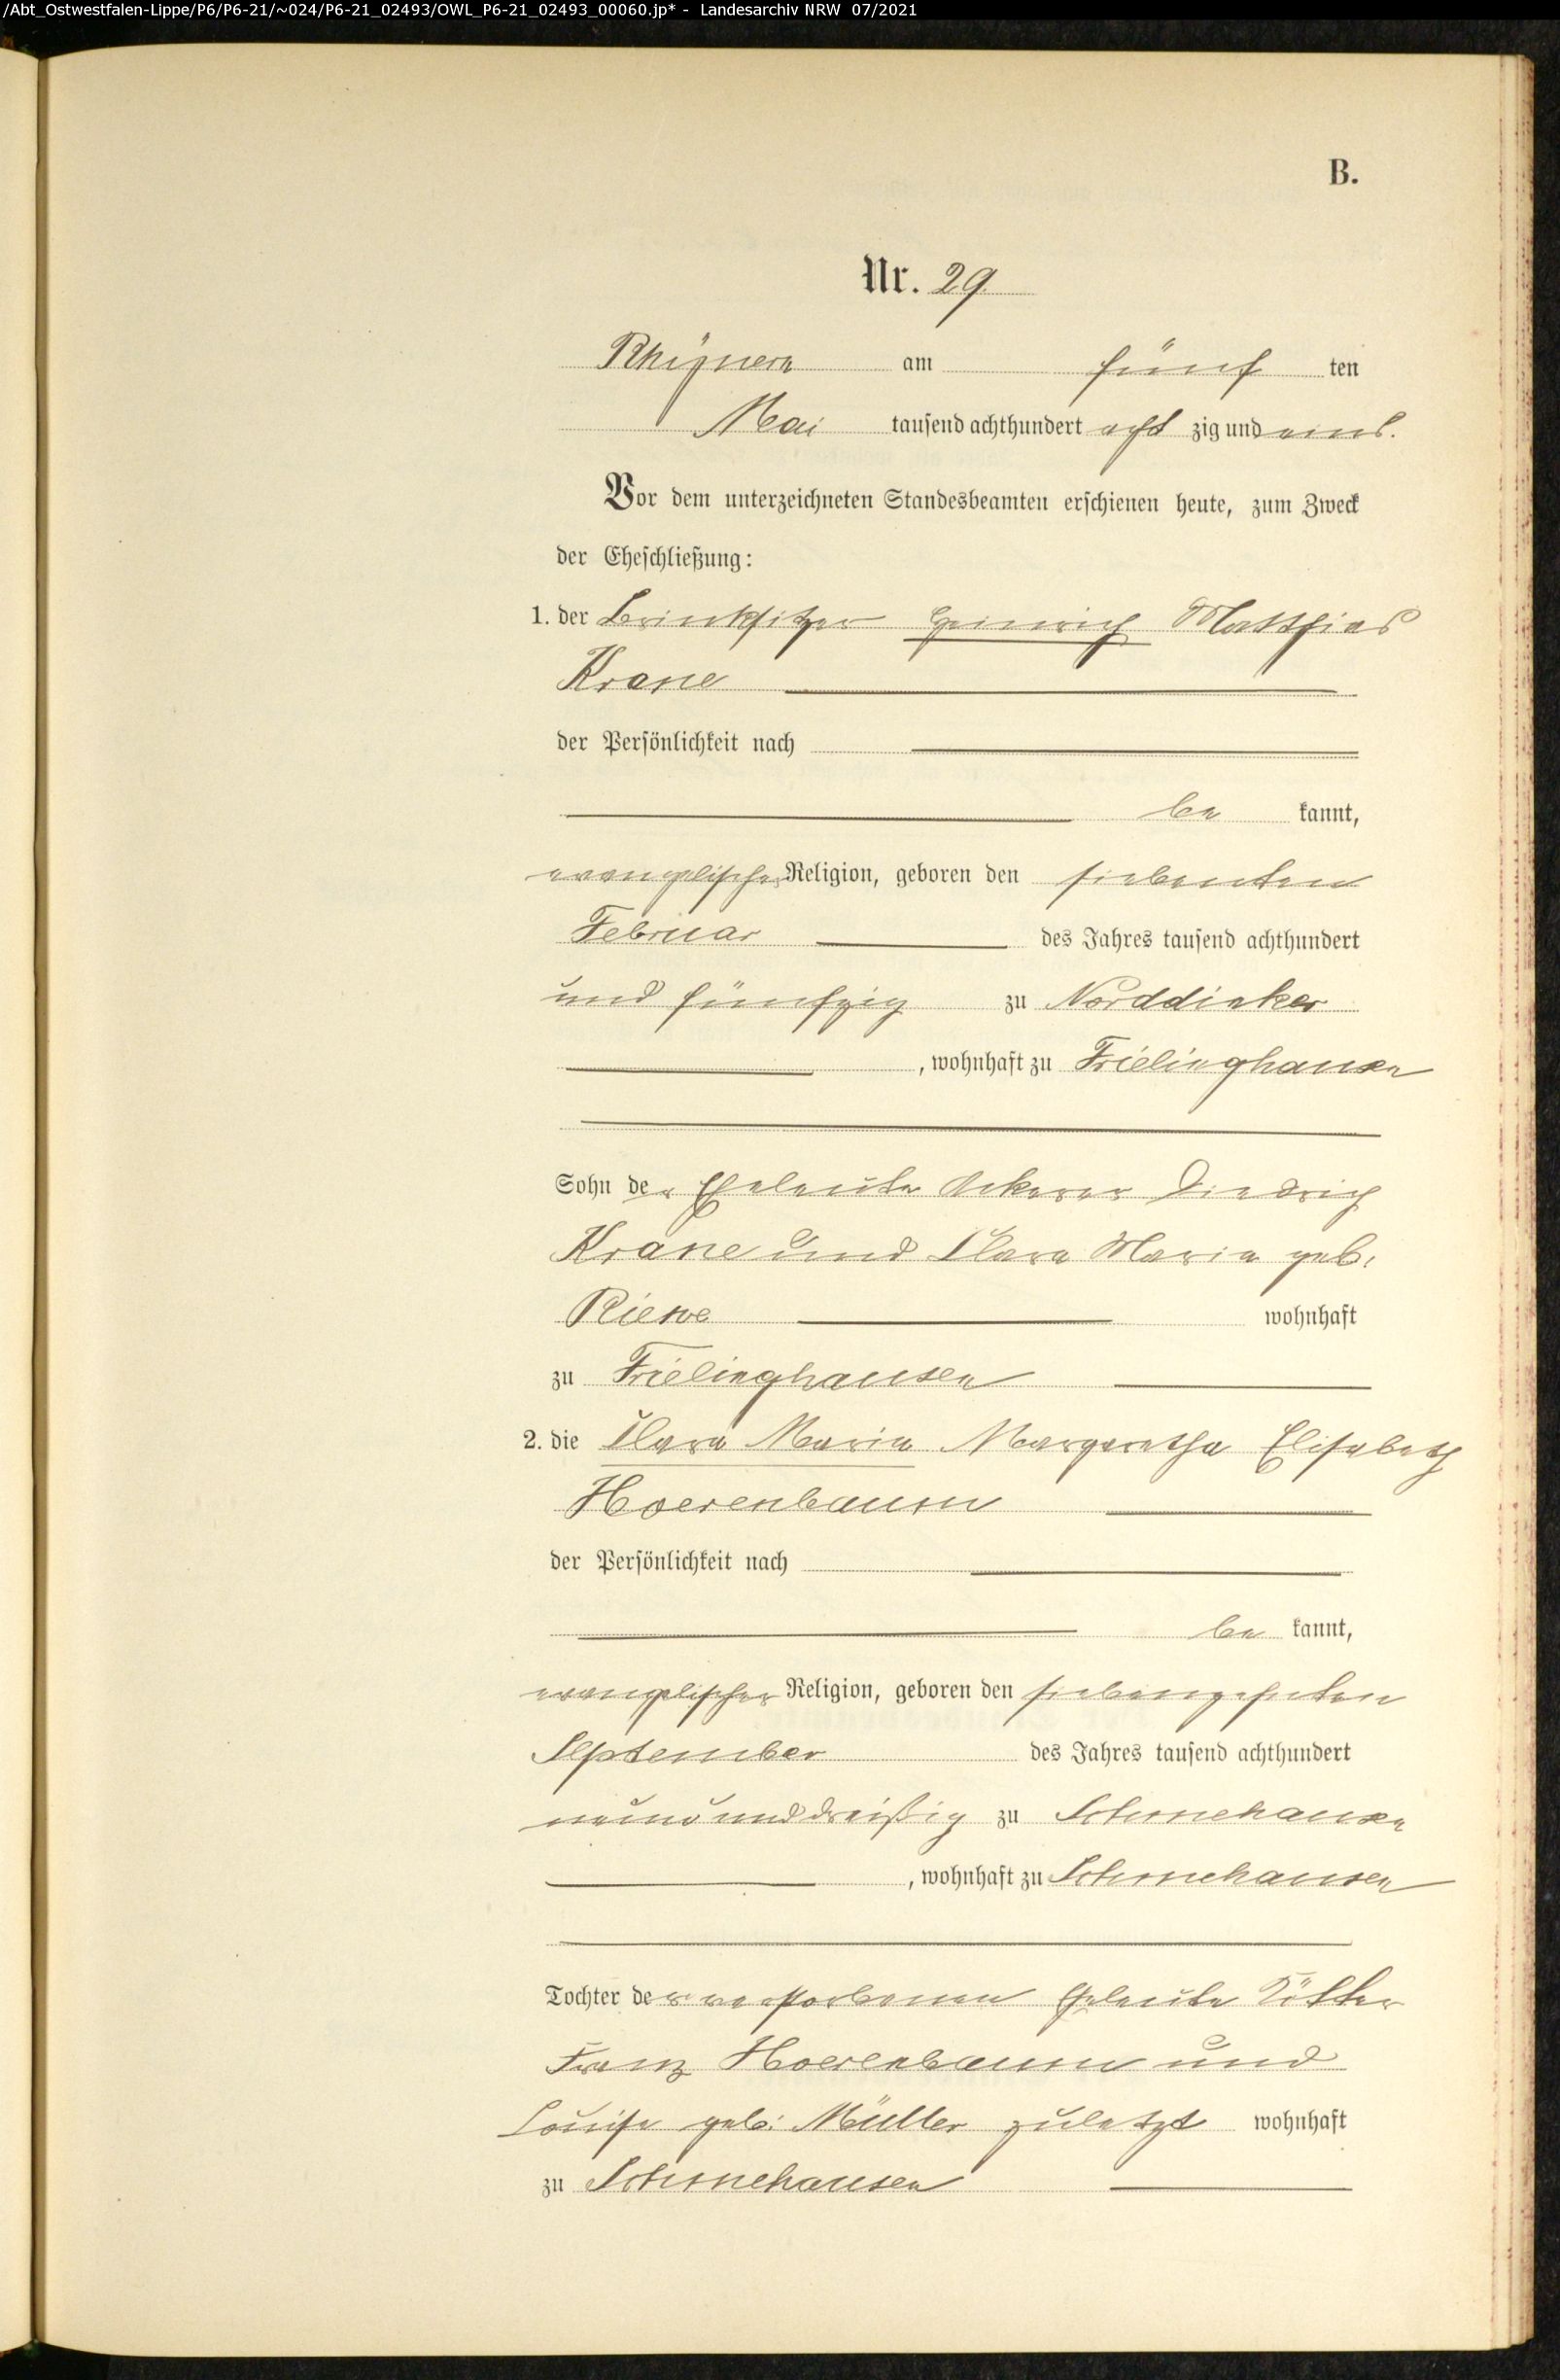 /Abt_Ostwestfalen-Lippe/P6/P6-21/~024/P6-21_02493/OWL_P6-21_02493_00060.jp* - Landesarchiv NRW 07/2021
B.
Nr. 29
Rhÿnern am fünf ten
Mai tausend achthundert acht zig und eins.
Vor dem unterzeichneten Standesbeamten erschienen heute, zum Zweck
der Eheschließung:
1. der Brinksitzer Heinrich Matthias
Krane
der Persönlichkeit nach
be kannt,
evangelischer Religion, geboren den siebenten
Februar des Jahres tausend achthundert
und fünfzig zu Norddinker
, wohnhaft zu Frielinghausen
Sohn der Eheleute Ackerer Diedrich
Krane und Clara Maria geb.
Riewe wohnhaft
zu Frielinghausen
2. die Clara Maria Margaretha Elisabeth
Hoerenbaum
der Persönlichkeit nach
be kannt,
evangelischer Religion, geboren den siebenzehnten
September des Jahres tausend achthundert
neununddreißig zu Schmehausen
, wohnhaft zu Schmehausen
Tochter der verstorbenen Eheleute Kötter
Franz Hoerenbaum und
Louise geb. Müller zuletzt wohnhaft
zu Schmehausen